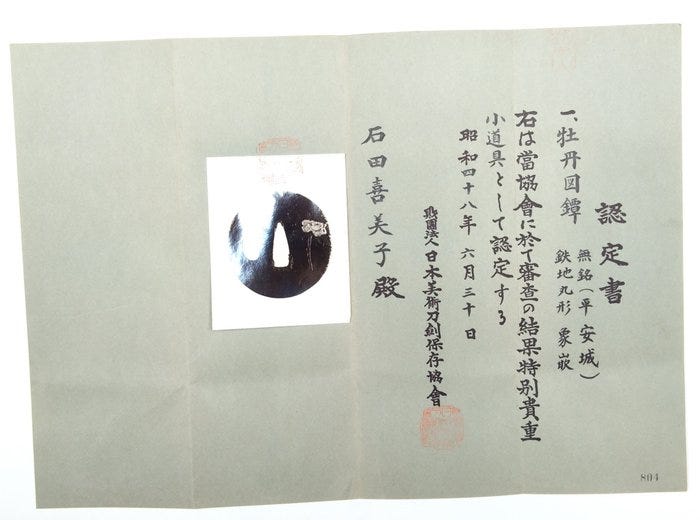 認定書
一、牡丹図鐔
無銘(平安城)
鉄地丸形 象嵌
右は當協會に於て審査の結果特別貴重
小道具として認定する
昭和四十八年 六月三十日
財團法人日本美術刀剣保存協會
石田喜美子殿
804